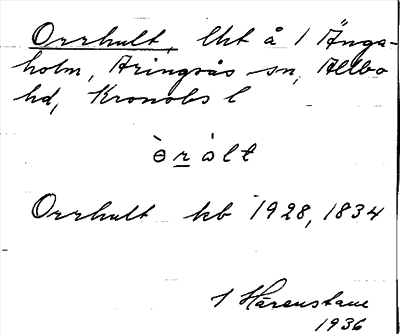 Orrhult, lht å 1 Änga-
holm, Aringsås sn, Allbo
hd, Kronobs l
òr̲ ålt
Orrhult kb 1928, 1834
1936